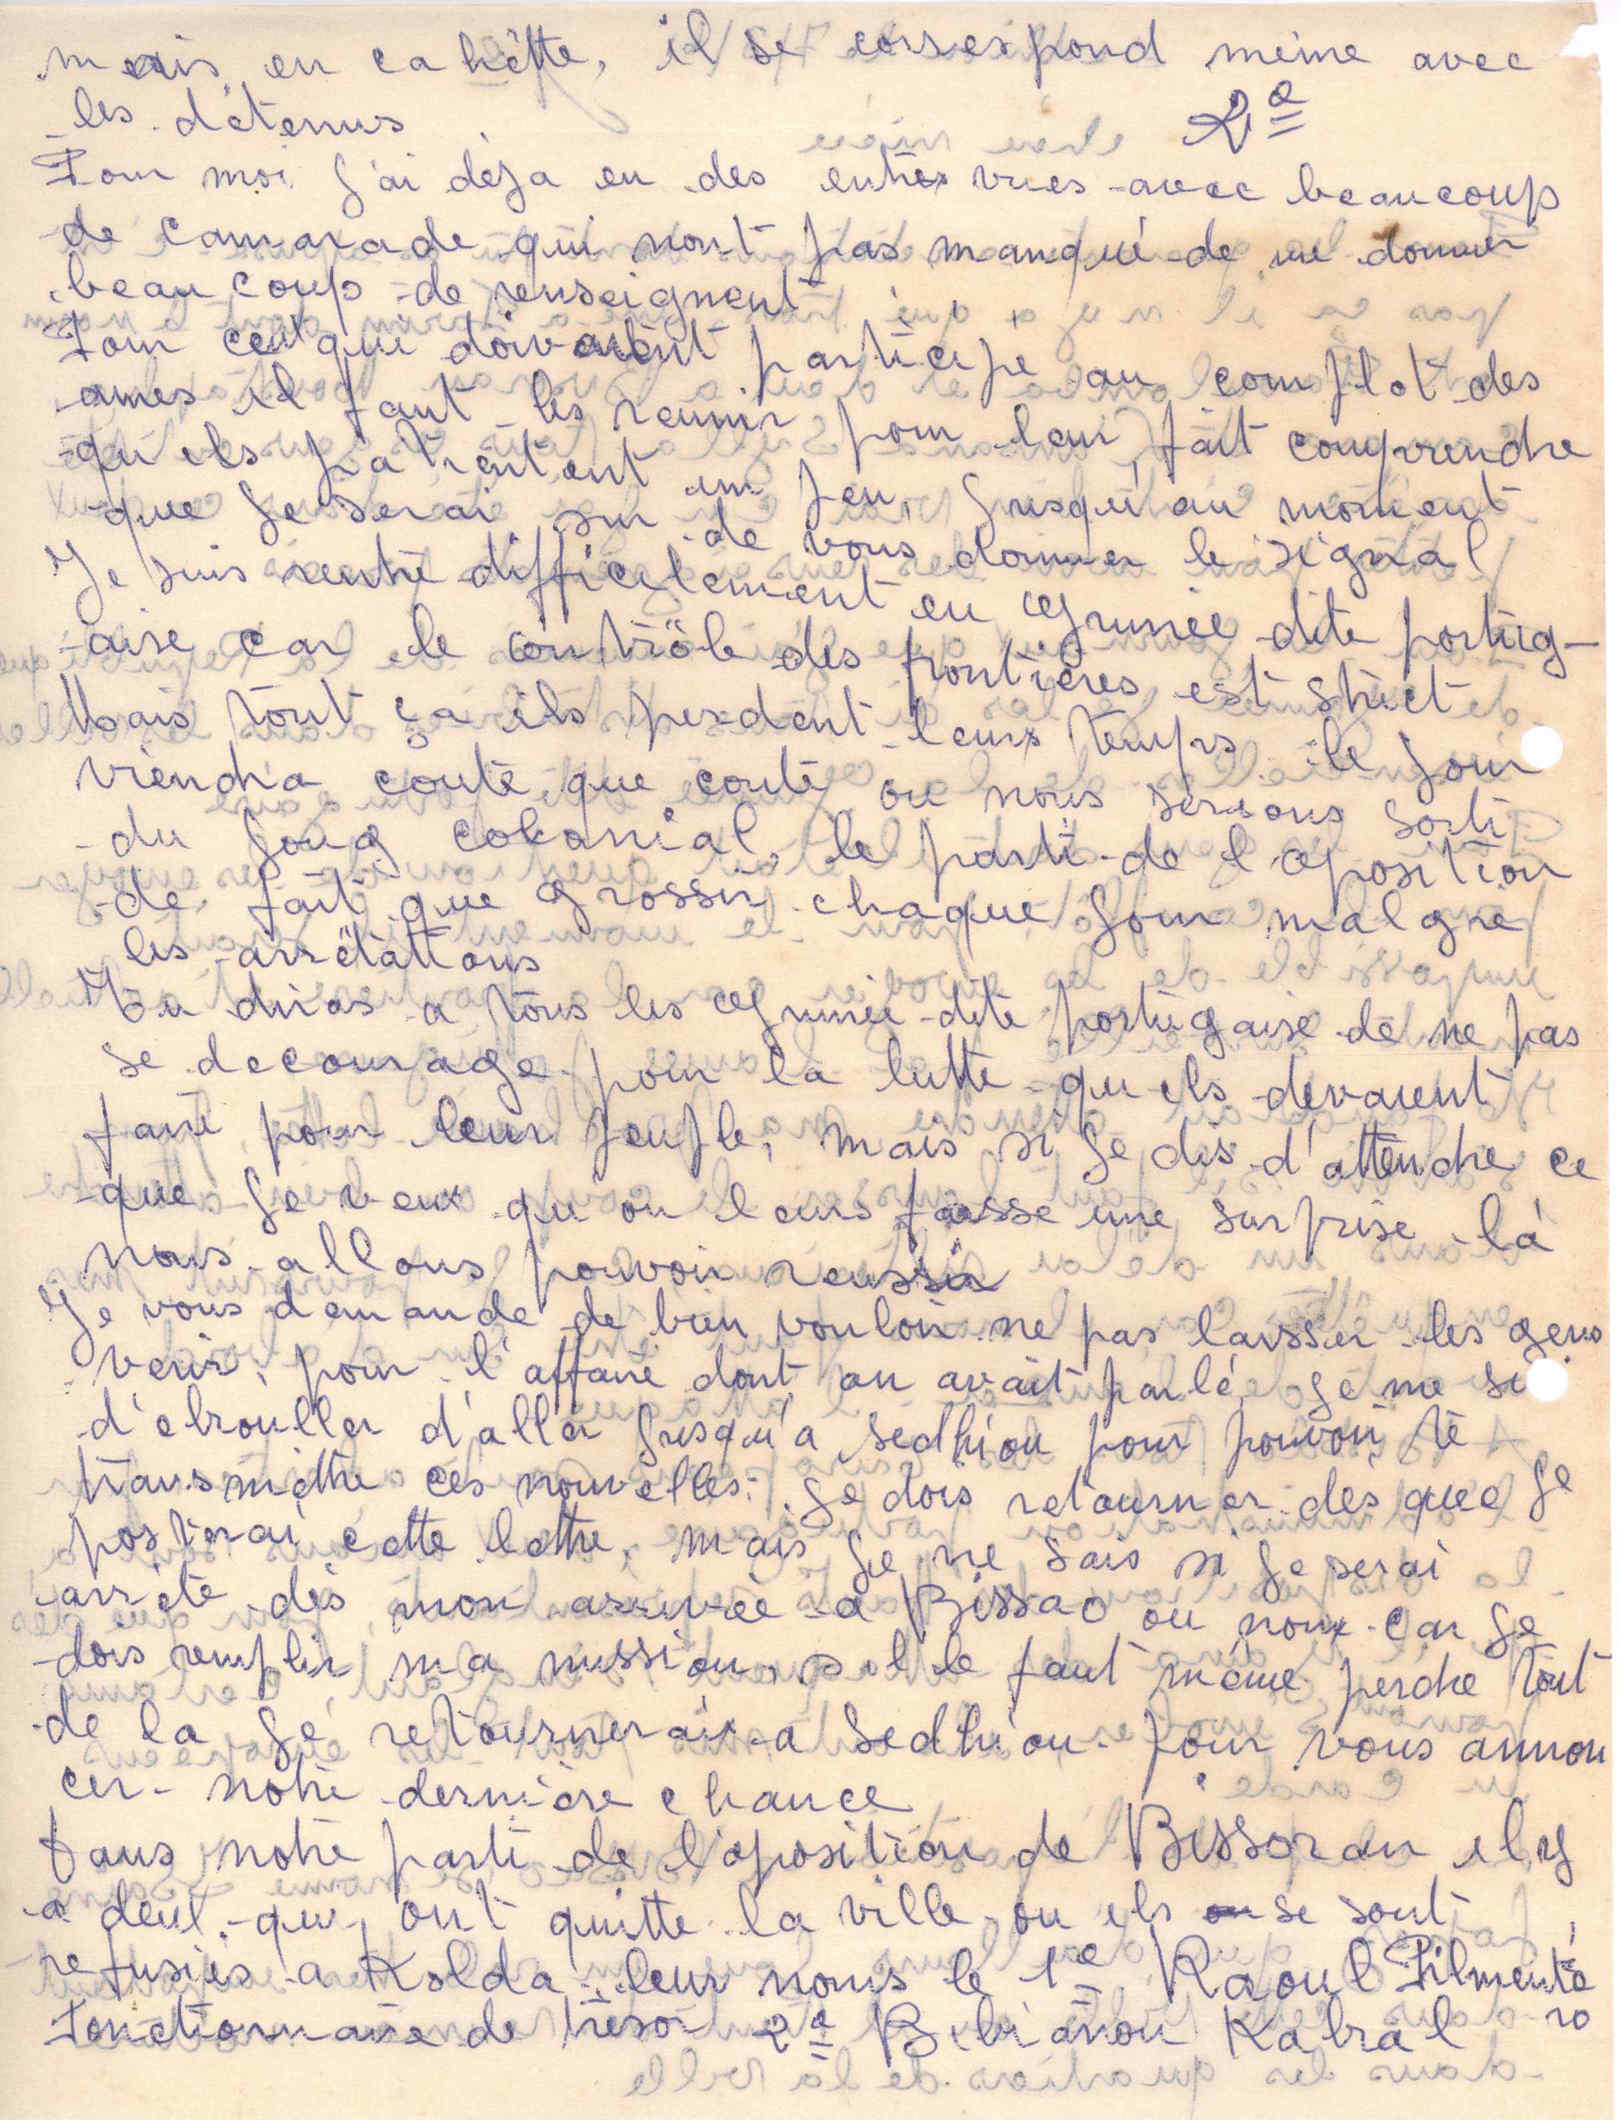 mais en cahètte, il se correspond mème avec
les détenus
2ª
Pour moi j'ai déja eu des entres vues avec beaucoup
de camarade qui nont pas manqué de me donner
beaucoup de renseignent
Pour ceut qui doivaient participe au complot des
armes il faut les reunir pour leur fait comprendre
qu'ils patientent un peu, jusqu'au moment
que je serai sur de vous donner le signal
Je suis rentré difficilement en Guinée dite portug-
aise car le contrôle des frontières est strict
Mais tout ça ils perdent leurs temps. le jour
viendra coute que coute ou nous serons sorti
du joug colonial, le parti de l'oposition
de fait que grossir chaque jour malgré
les arrètattons
Tu diras a tous les Guinée dite portugaise de ne pas
se decourage pour la lutte qu ils devaient
faire pour leur peuple, mais si je dis d'attendre ce
que je veux qu'on leurs fasse une surprise là
nous allons pouvoir reussir
Je vous demande de bien vouloir ne pas laisser les gens
venir, pour l'affaire dont on avait parlé, je me
d'ebrouller d'aller jusqu'a sedhiou pour pouvoir te
transmettre ces nouvelles. je dois retourner des quee je
posterai cette lettre, mais je ne sais si je serai
arrèté dès mon arrivée a Bissao ou nom car je
dois remplir ma mission, s il le faut même perdre tout
de la je retournerair a Sedhiou pour vous annon
cer notre dernière chance
Dans notre parti de l'oposition de Bissoran il y
a deut qui ont quitte la ville ou ils se sont
refusiès a Kolda leur noms le 1e Raoul Pilmenta
Fonctionnaire de Trèsor 2ª Bibianou Kabral